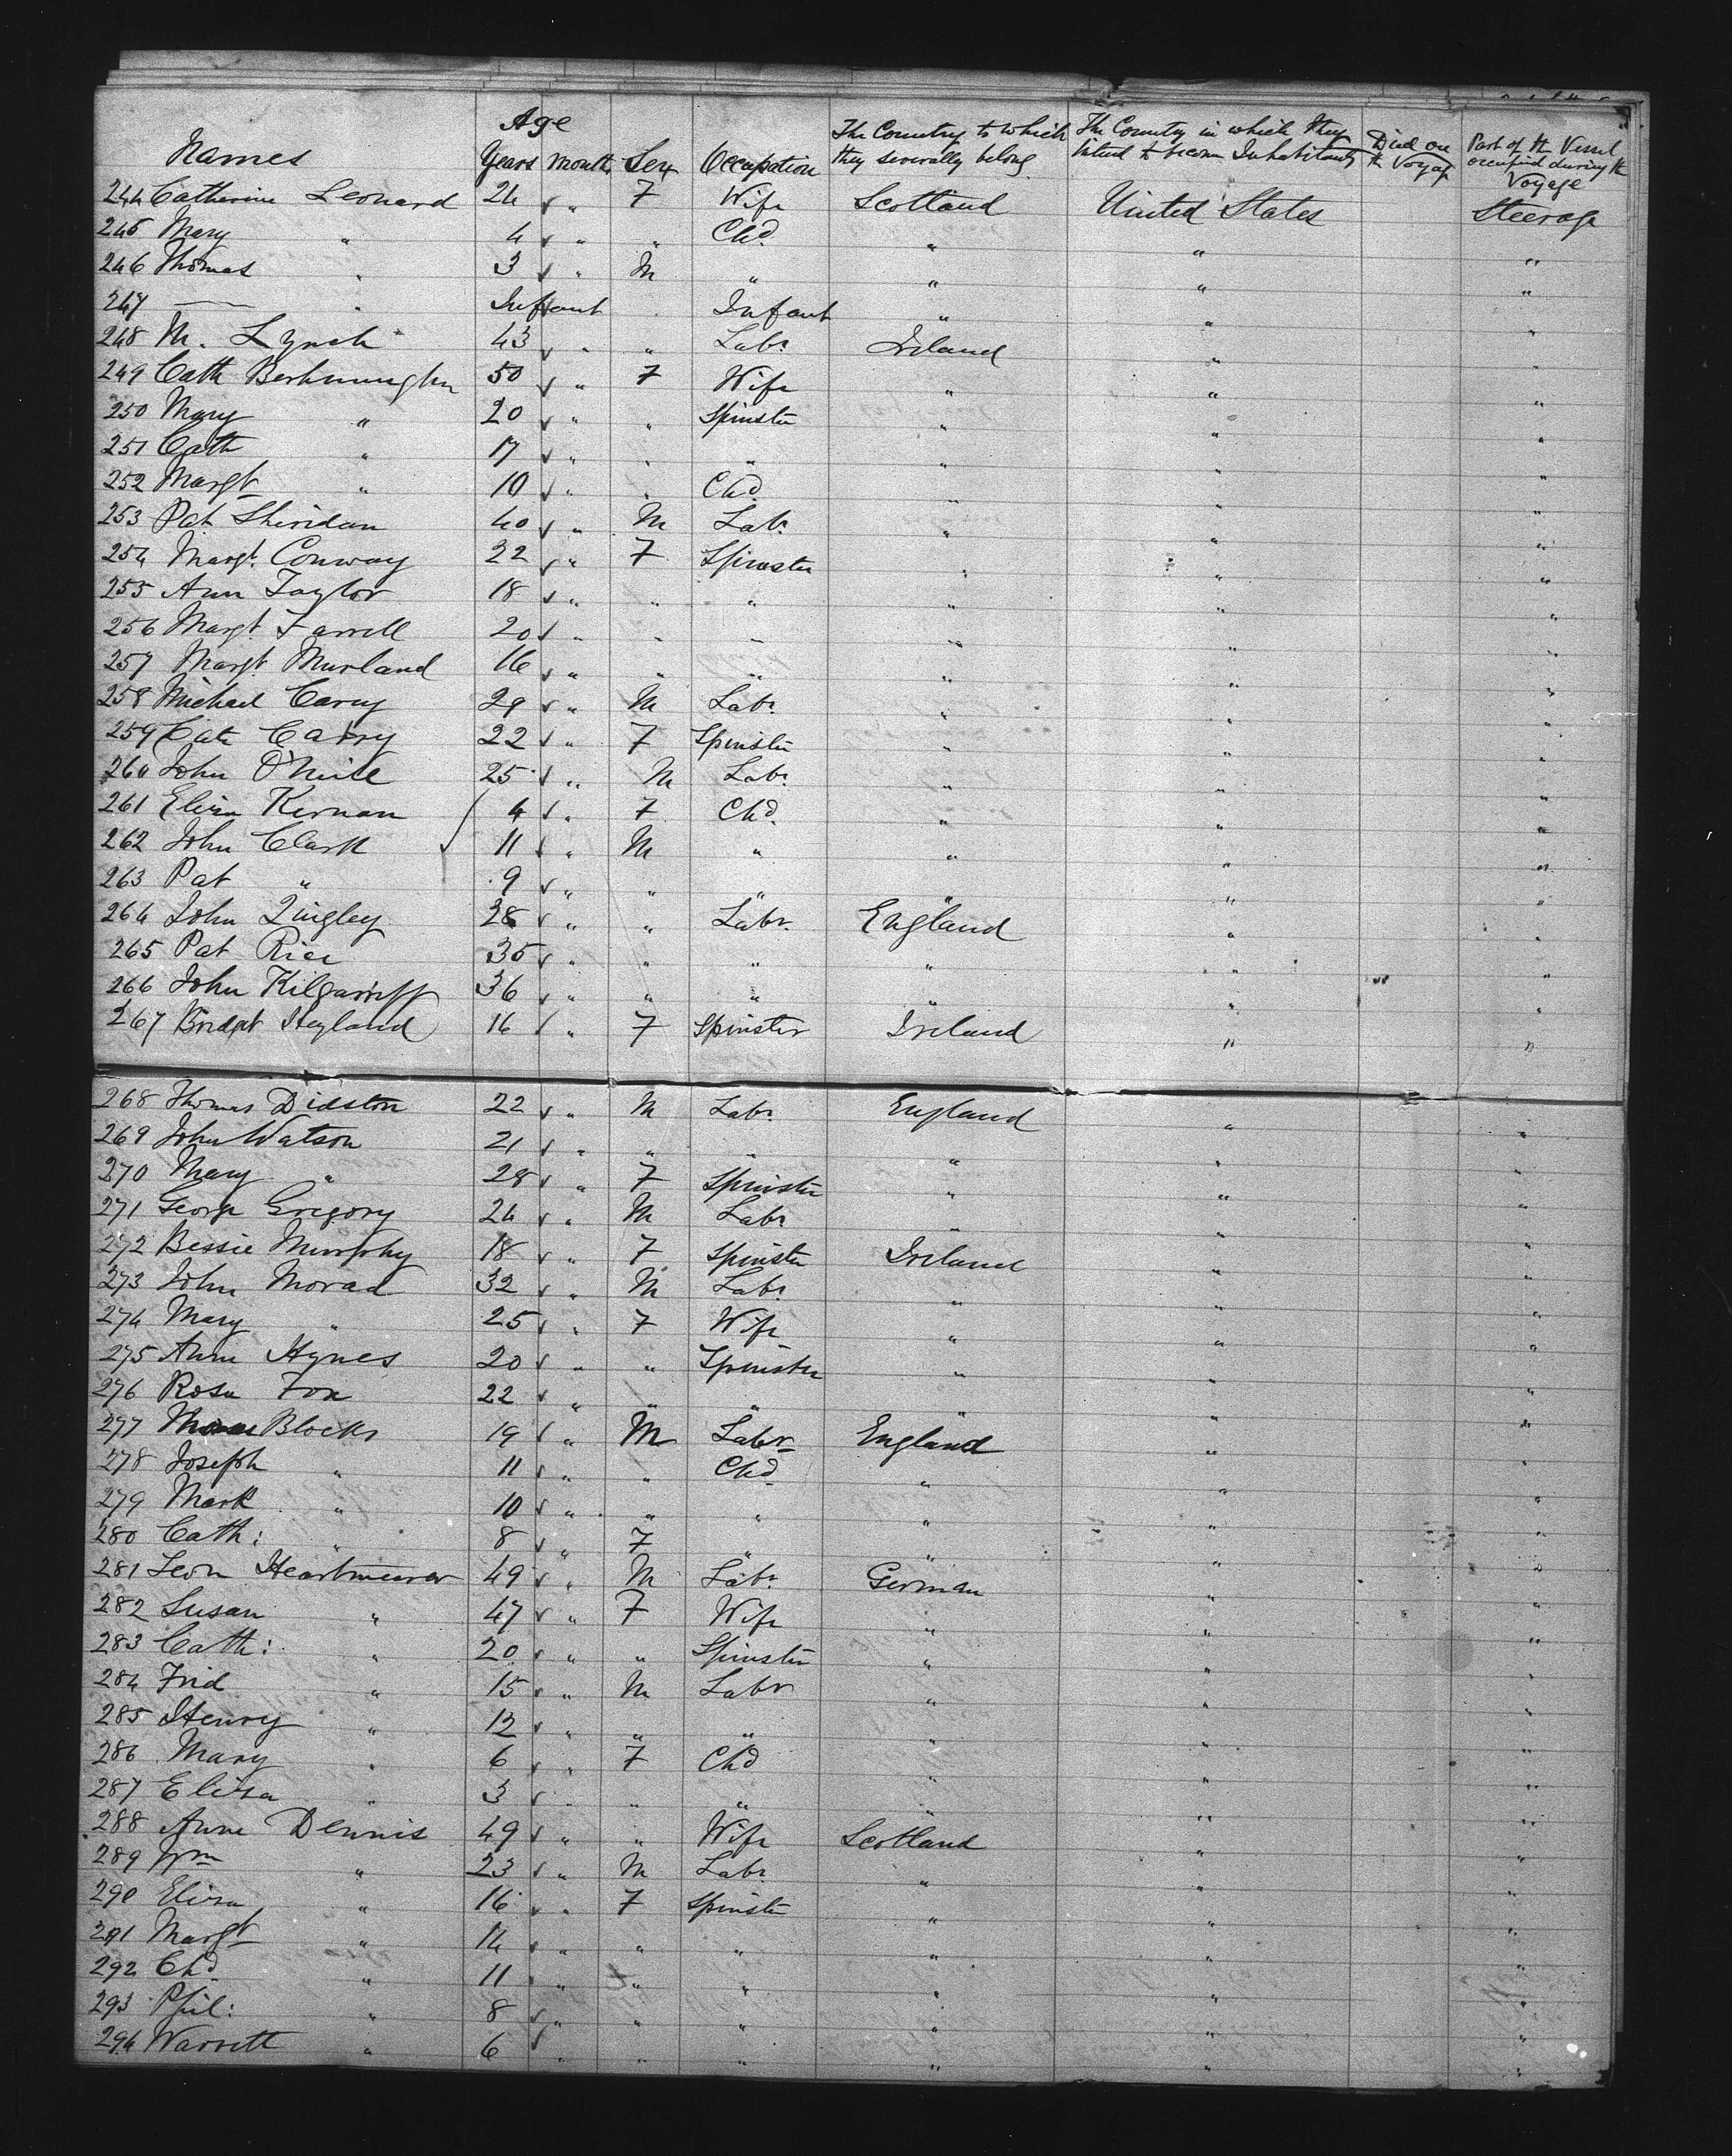 Names Age Years Months Sex Occupation The Country to which they severally belong The Country in which they intend to become Inhabitants Died on the Voyage Part of the Vessel occupied during the Voyage
244 Catherine Leonard 24 " F Wife Scotland United States Steerage
245 Mary " 4 " " Chd. " " "
246 Thomas " 3 " M " " " "
247 — " Infant " Infant " " "
248 M. Lynch 43 " " Labr. Ireland " "
249 Cath 50 " F Wife " " "
250 Mary " 20 " " Spinster " " "
251 Cath " 17 " " " " " "
252 Margt " 10 " " Chd. " " "
253 Pat Sheridan 40 " M Labr. " " "
254 Margt. Conway 22 " F Spinster " " "
255 Ann Taylor 18 " " " " " "
256 Margt. Farrell 20 " " " " " "
257 Margt. Murland 16 " " " " " "
258 Michael Carey 29 " M Labr. " " "
259 Cate 22 " F Spinster " " "
260 John O'Neile 25 " M Labr. " " "
261 Eliza Kernan 4 " F Chd. " " "
262 John Clark 11 " M " " " "
263 Pat " 9 " " " " " "
264 John 28 " " Labr. England " "
265 Pat Rice 35 " " " " " "
266 John Kilgarriff 36 " " " " " "
267 Bridget Heyland 16 " F Spinster Ireland " "
268 Thomas Didston 22 " M Labr. England " "
269 John Watson 21 " " " " " "
270 Mary " 28 " F Spinster " " "
271 George Gregory 24 " M Labr " " "
272 Bessie Murphy 18 " F Spinster Ireland " "
273 John Morad 32 " M Labr. " " "
274 Mary " 25 " F Wife " " "
275 Anne Hynes 20 " " Spinster " " "
276 Rosa Fox 22 " " " " " "
277 Blocks 19 " M Labr England " "
278 Joseph " 11 " " Chd " " "
279 Mark " 10 " " " " " "
280 Cath: " 8 " F " " " "
281 Leon 49 " M Labr. German " "
282 Susan " 47 " F Wife " " "
283 Cath: " 20 " " Spinster " " "
284 Fred " 15 " M Labr " " "
285 Henry " 12 " " " " " "
286 Mary " 6 " F Chd " " "
287 Eliza " 3 " " " " " "
288 Anne Dennis 49 " " Wife Scotland " "
289 Wm " 23 " M Labr. " " "
290 Eliza " 16 " F Spinster " " "
291 Margt " 14 " " " " " "
292 Chd. " 11 " " " " " "
293 Phil: " 8 " " " " " "
294 Warrett " 6 " " " " " "